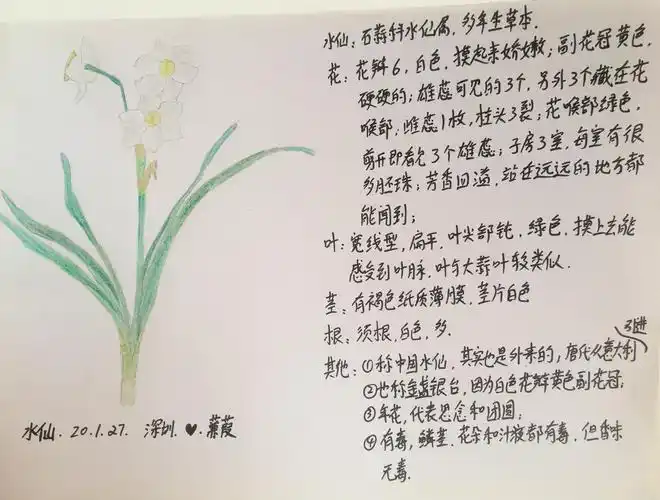 水仙:石蒜科水仙属,多年生草本.
花:花瓣6,白色,摸起来娇嫩;副花冠黄色,
硬硬的;雄蕊可见的3个,另外3个藏在花
喉部,雌蕊1枚,柱头3裂;花喉部绿色,
剪开即看见3个雄蕊;子房3室,每室有很
多胚珠;芳香四溢,站在远远的地方都
能闻到;
叶:宽线型,扁平,叶尖部钝,绿色,摸上去能
感受到叶脉,叶与大蒜叶较类似.
茎:有褐色纸质薄膜,茎片白色
根:须根,白色,多.
引进
其他:①称中国水仙,其实也是外来的,唐代从意大利
②也称金盏银台,因为白色花瓣黄色副花冠;
③年花,代表思念和团圆;
④有毒,鳞茎,花朵和汁液都有毒,但香味
无毒.
水仙.20.1.27.深圳.♥.蒹葭